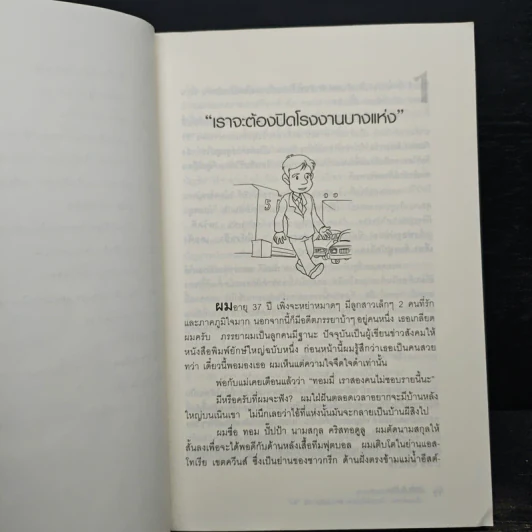 1
“เราจะต้องปิดโรงงานบางแห่ง”
ผมอายุ 37 ปี เพิ่งจะหย่าหมาดๆ มีลูกสาวเล็กๆ 2 คนที่รัก
และภาคภูมิใจมาก นอกจากนี้ก็มีอดีตภรรยาบ้าๆ อยู่คนหนึ่ง เธอเกลียด
ผมครับ ภรรยาผมเป็นลูกคนมีฐานะ ปัจจุบันเป็นผู้เขียนข่าวสังคมให้
หนังสือพิมพ์ยักษ์ใหญ่ฉบับหนึ่ง ก่อนหน้านี้ผมรู้สึกว่าเธอเป็นคนสวย
ทว่า เดี๋ยวนี้พอมองเธอ ผมเห็นแต่ความใจจืดใจดำเท่านั้น
พ่อกับแม่เคยเตือนแล้วว่า “ทอมมี่ เราสองคนไม่ชอบรายนี้นะ”
มีหรือครับที่ผมจะฟัง? ผมใฝ่ฝันตลอดเวลาอยากจะมีบ้านหลัง
ใหญ่บนเนินเขา ไม่นึกเลยว่าใช้ที่แห่งนั้นมันจะกลายเป็นบ้านผีสิงไป
ผมชื่อ ทอม ปั๊ปป้า นามสกุล คริสทอดูลู ผมตัดนามสกุลให้
สั้นลงเพื่อจะได้พอดีกับด้านหลังเสื้อทีมฟุตบอล ผมเติบโตในย่านแอส-
โทเรีย เขตควีนส์ ซึ่งเป็นย่านของชาวกรีก ด้านฝั่งตรงข้ามแม่น้ำอีสต์-